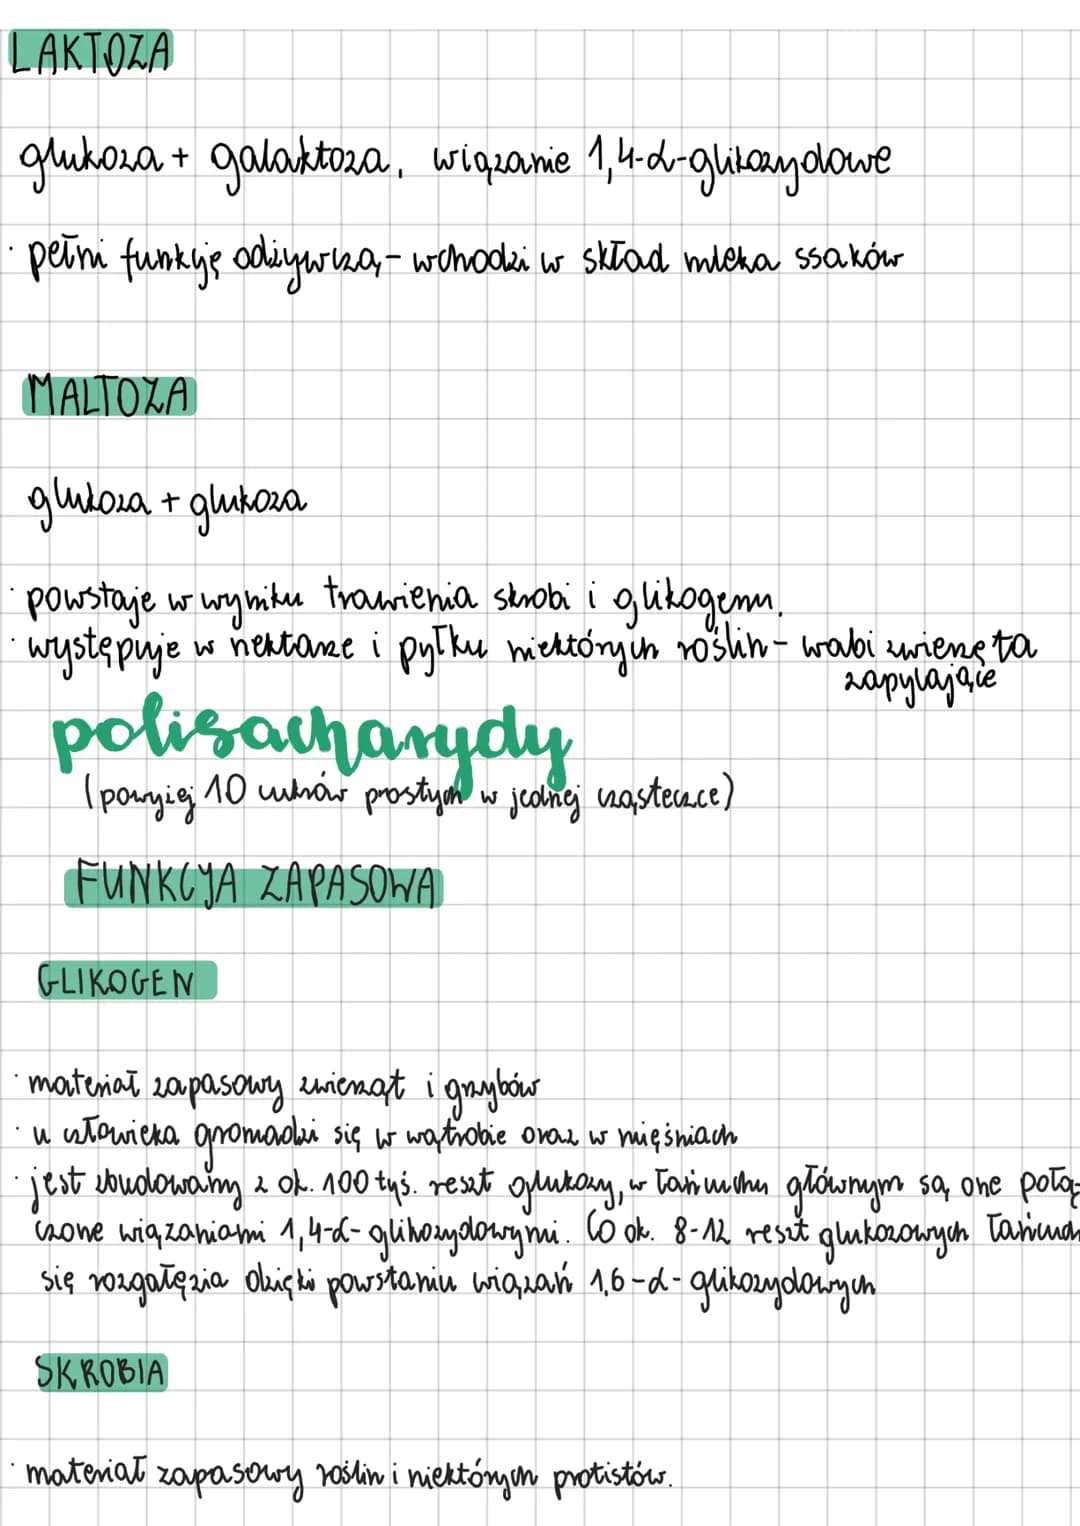 LAKTOZA
glukoza + galaktoza, wiązanie 1,4-α-glikozydowe
· pełni funkcję odżywczą - wchodzi w skład mleka ssaków
MALTOZA
glukoza + glukoza
· powstaje w wyniku trawienia skrobi i glikogenu.
· występuje w nektarze i pyłku niektórych roślin - wabi zwierzęta
zapylające
polisacharydy
(powyżej 10 cukrów prostych w jednej cząsteczce)
FUNKCJA ZAPASOWA
GLIKOGEN
· materiał zapasowy zwierząt i grzybów
· u człowieka gromadzi się w wątrobie oraz w mięśniach
· jest zbudowany z ok. 100 tyś. reszt glukozy, w łańcuchu głównym są one połą-
czone wiązaniami 1,4-α-glikozydowymi. Co ok. 8-12 reszt glukozowych łańcuch
się rozgałęzia dzięki powstaniu wiązań 1,6-α-glikozydowych
SKROBIA
· materiał zapasowy roślin i niektórych protistów.